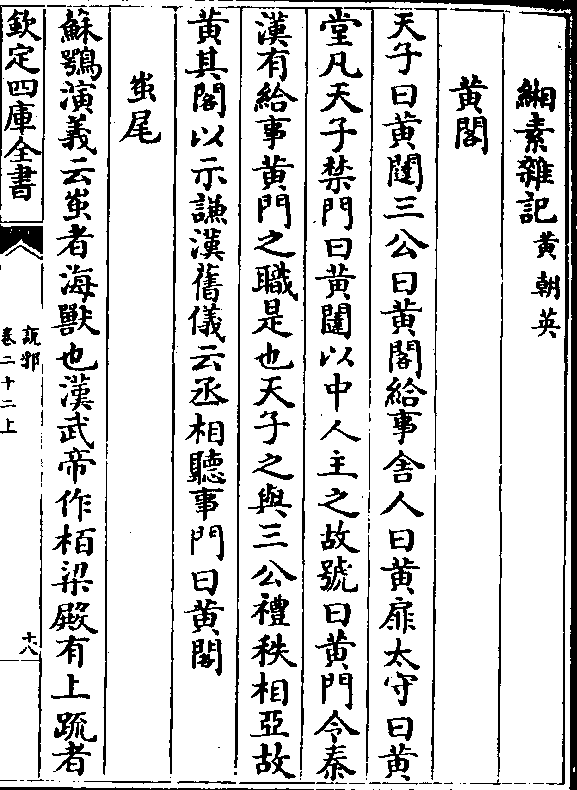 緗素雜記 黄朝英
黄閣
天子曰黄闥三公曰黄閣給事舍人曰黄扉太守曰黄
堂凡天子禁門曰黄闥以中人主之故號曰黄門令秦
漢有給事黄門之職是也天子之與三公禮秩相亞故
黄其閣以示謙漢舊儀云丞相聽事門曰黄閣
蚩尾
蘇鶚演義云蚩者海獸也漢武帝作栢梁殿有上疏者
欽定四庫全書
說郛
卷二十二上
十八